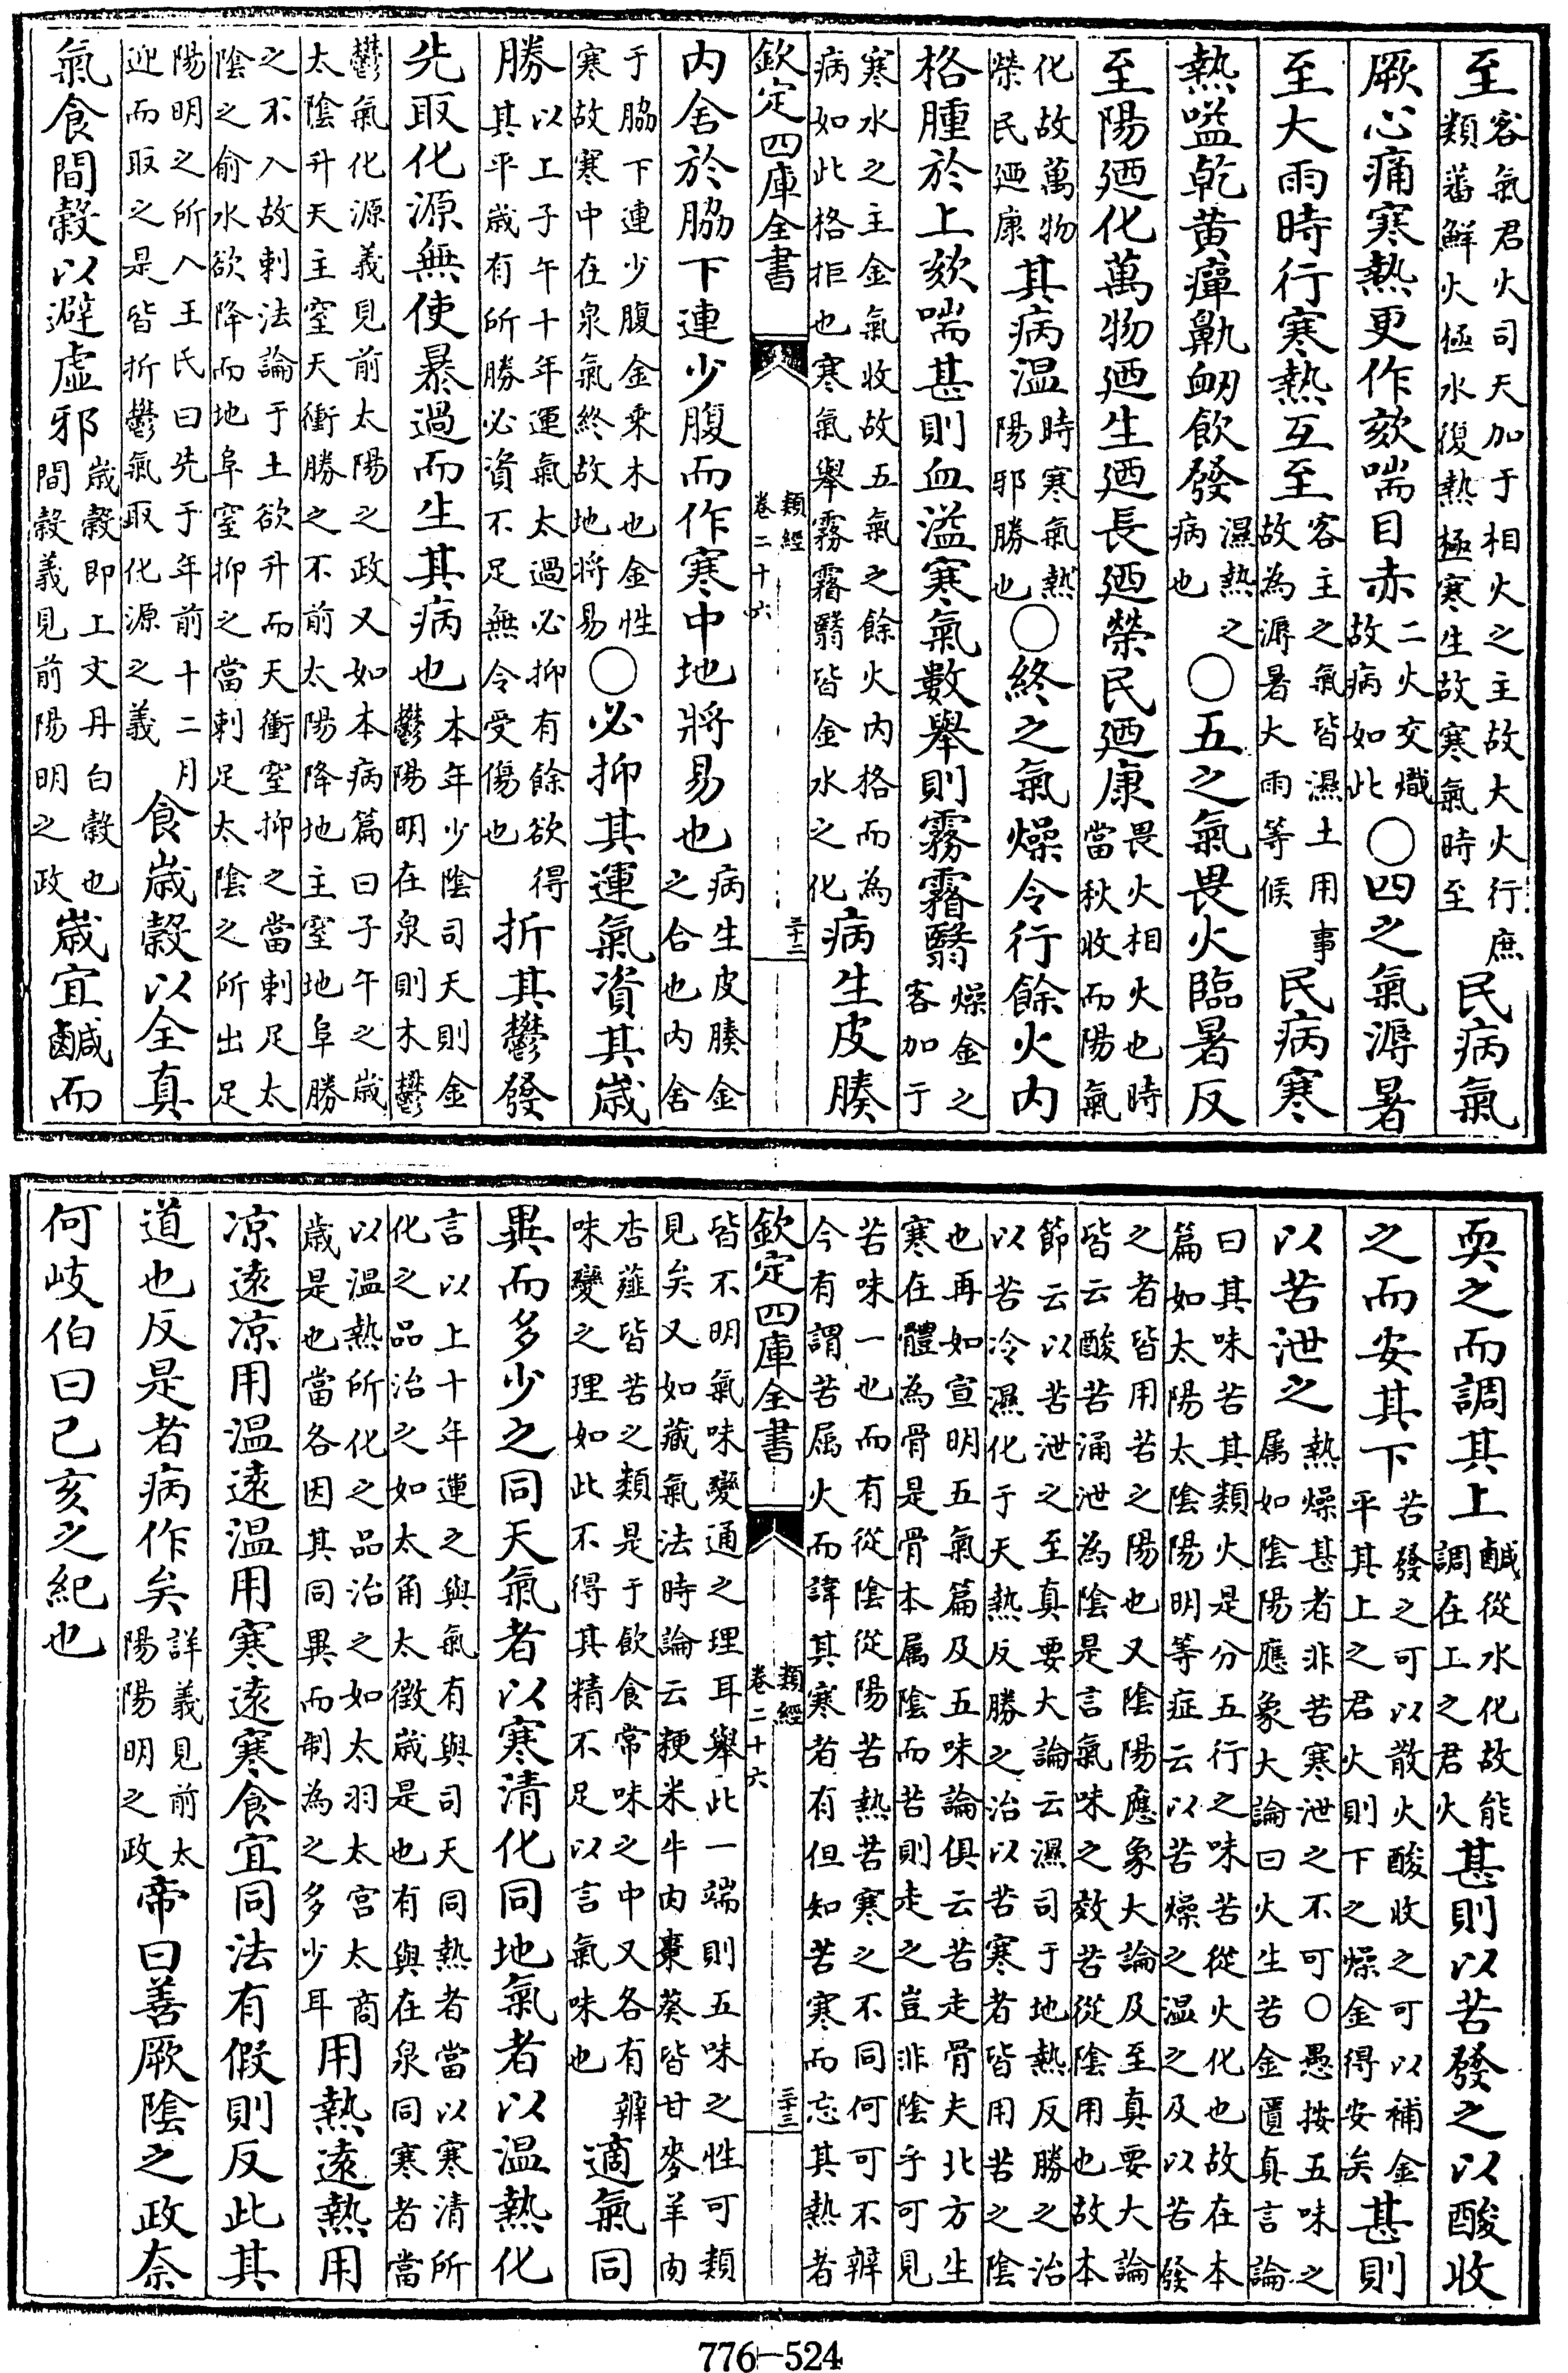 至客氣君火司天加于相火之主故大火行庶
類蕃鮮火極水復熱極寒生故寒氣時至民病氣
厥心痛寒熱更作欬喘目赤二火交熾
故病如此○四之氣溽暑
至大雨時行寒熱互至客主之氣皆濕土用事
故為溽暑大雨等候民病寒
熱嗌乾黄癉鼽衂飲發濕熱之
病也○五之氣畏火臨暑反
至陽廼化萬物廼生廼長廼榮民廼康畏火相火也時
當秋收而陽氣
化故萬物
榮民廼康其病温時寒氣熱
陽邪勝也○終之氣燥令行餘火内
格腫於上欬喘甚則血溢寒氣數舉則霧霿翳燥金之
客加于
寒水之主金氣收故五氣之餘火内格而為
病如此格拒也寒氣舉霧霿翳皆金水之化病生皮腠
欽定四庫全書 類經
卷二十六 三十二
内舍於脇下連少腹而作寒中地將易也病生皮腠金
之合也内舍
于脇下連少腹金乘木也金性
寒故寒中在泉氣終故地將易○必抑其運氣資其歳
勝以上子午十年運氣太過必抑有餘欲得
其平歳有所勝必資不足無令受傷也折其鬱發
先取化源無使暴過而生其病也本年少陰司天則金
鬱陽明在泉則木鬱
鬱氣化源義見前太陽之政又如本病篇曰子午之歳
太陰升天主窒天衝勝之不前太陽降地主窒地阜勝
之不入故刺法論于土欲升而天衝窒抑之當刺足太
陰之俞水欲降而地阜窒抑之當刺足太陰之所出足
陽明之所入王氏曰先于年前十二月
迎而取之是皆折鬱氣取化源之義食歳榖以全真
氣食間榖以避虛邪歳榖即上文丹白榖也
間榖義見前陽明之政歳宜鹹而
耎之而調其上鹹從水化故能
調在上之君火甚則以苦發之以酸收
之而安其下苦發之可以散火酸收之可以補金
平其上之君火則下之燥金得安矣甚則
以苦泄之熱燥甚者非苦寒泄之不可○愚按五味之
属如陰陽應象大論曰火生苦金匱真言論
曰其味苦其類火是分五行之味苦從火化也故在本
篇如太陽太陰陽明等症云以苦燥之温之及以苦發
之者皆用苦之陽也又陰陽應象大論及至真要大論
皆云酸苦涌泄為陰是言氣味之效苦從陰用也故本
節云以苦泄之至真要大論云濕司于地熱反勝之治
以苦冷濕化于天熱反勝之治以苦寒者皆用苦之陰
也再如宣明五氣篇及五味論俱云苦走骨夫北方生
寒在體為骨是骨本属陰而苦則走之豈非陰乎可見
苦味一也而有從陰從陽苦熱苦寒之不同何可不辨
今有謂苦属火而諱其寒者有但知苦寒而忘其熱者
欽定四庫全書 類經
卷二十六 三十三
皆不明氣味變通之理耳舉此一端則五味之性可類
見矣又如藏氣法時論云粳米牛肉棗葵皆甘麥羊肉
杏薤皆苦之類是于飲食常味之中又各有辨
味變之理如此不得其精不足以言氣味也適氣同
異而多少之同天氣者以寒清化同地氣者以温熱化
言以上十年運之與氣有與司天同熱者當以寒清所
化之品治之如太角太徵歳是也有與在泉同寒者當
以温熱所化之品治之如太羽太宫太商
歳是也當各因其同異而制為之多少耳用熱遠熱用
凉遠凉用温遠温用寒遠寒食宜同法有假則反此其
道也反是者病作矣詳義見前太
陽陽明之政帝曰善厥陰之政奈
何岐伯曰已亥之紀也
776-524